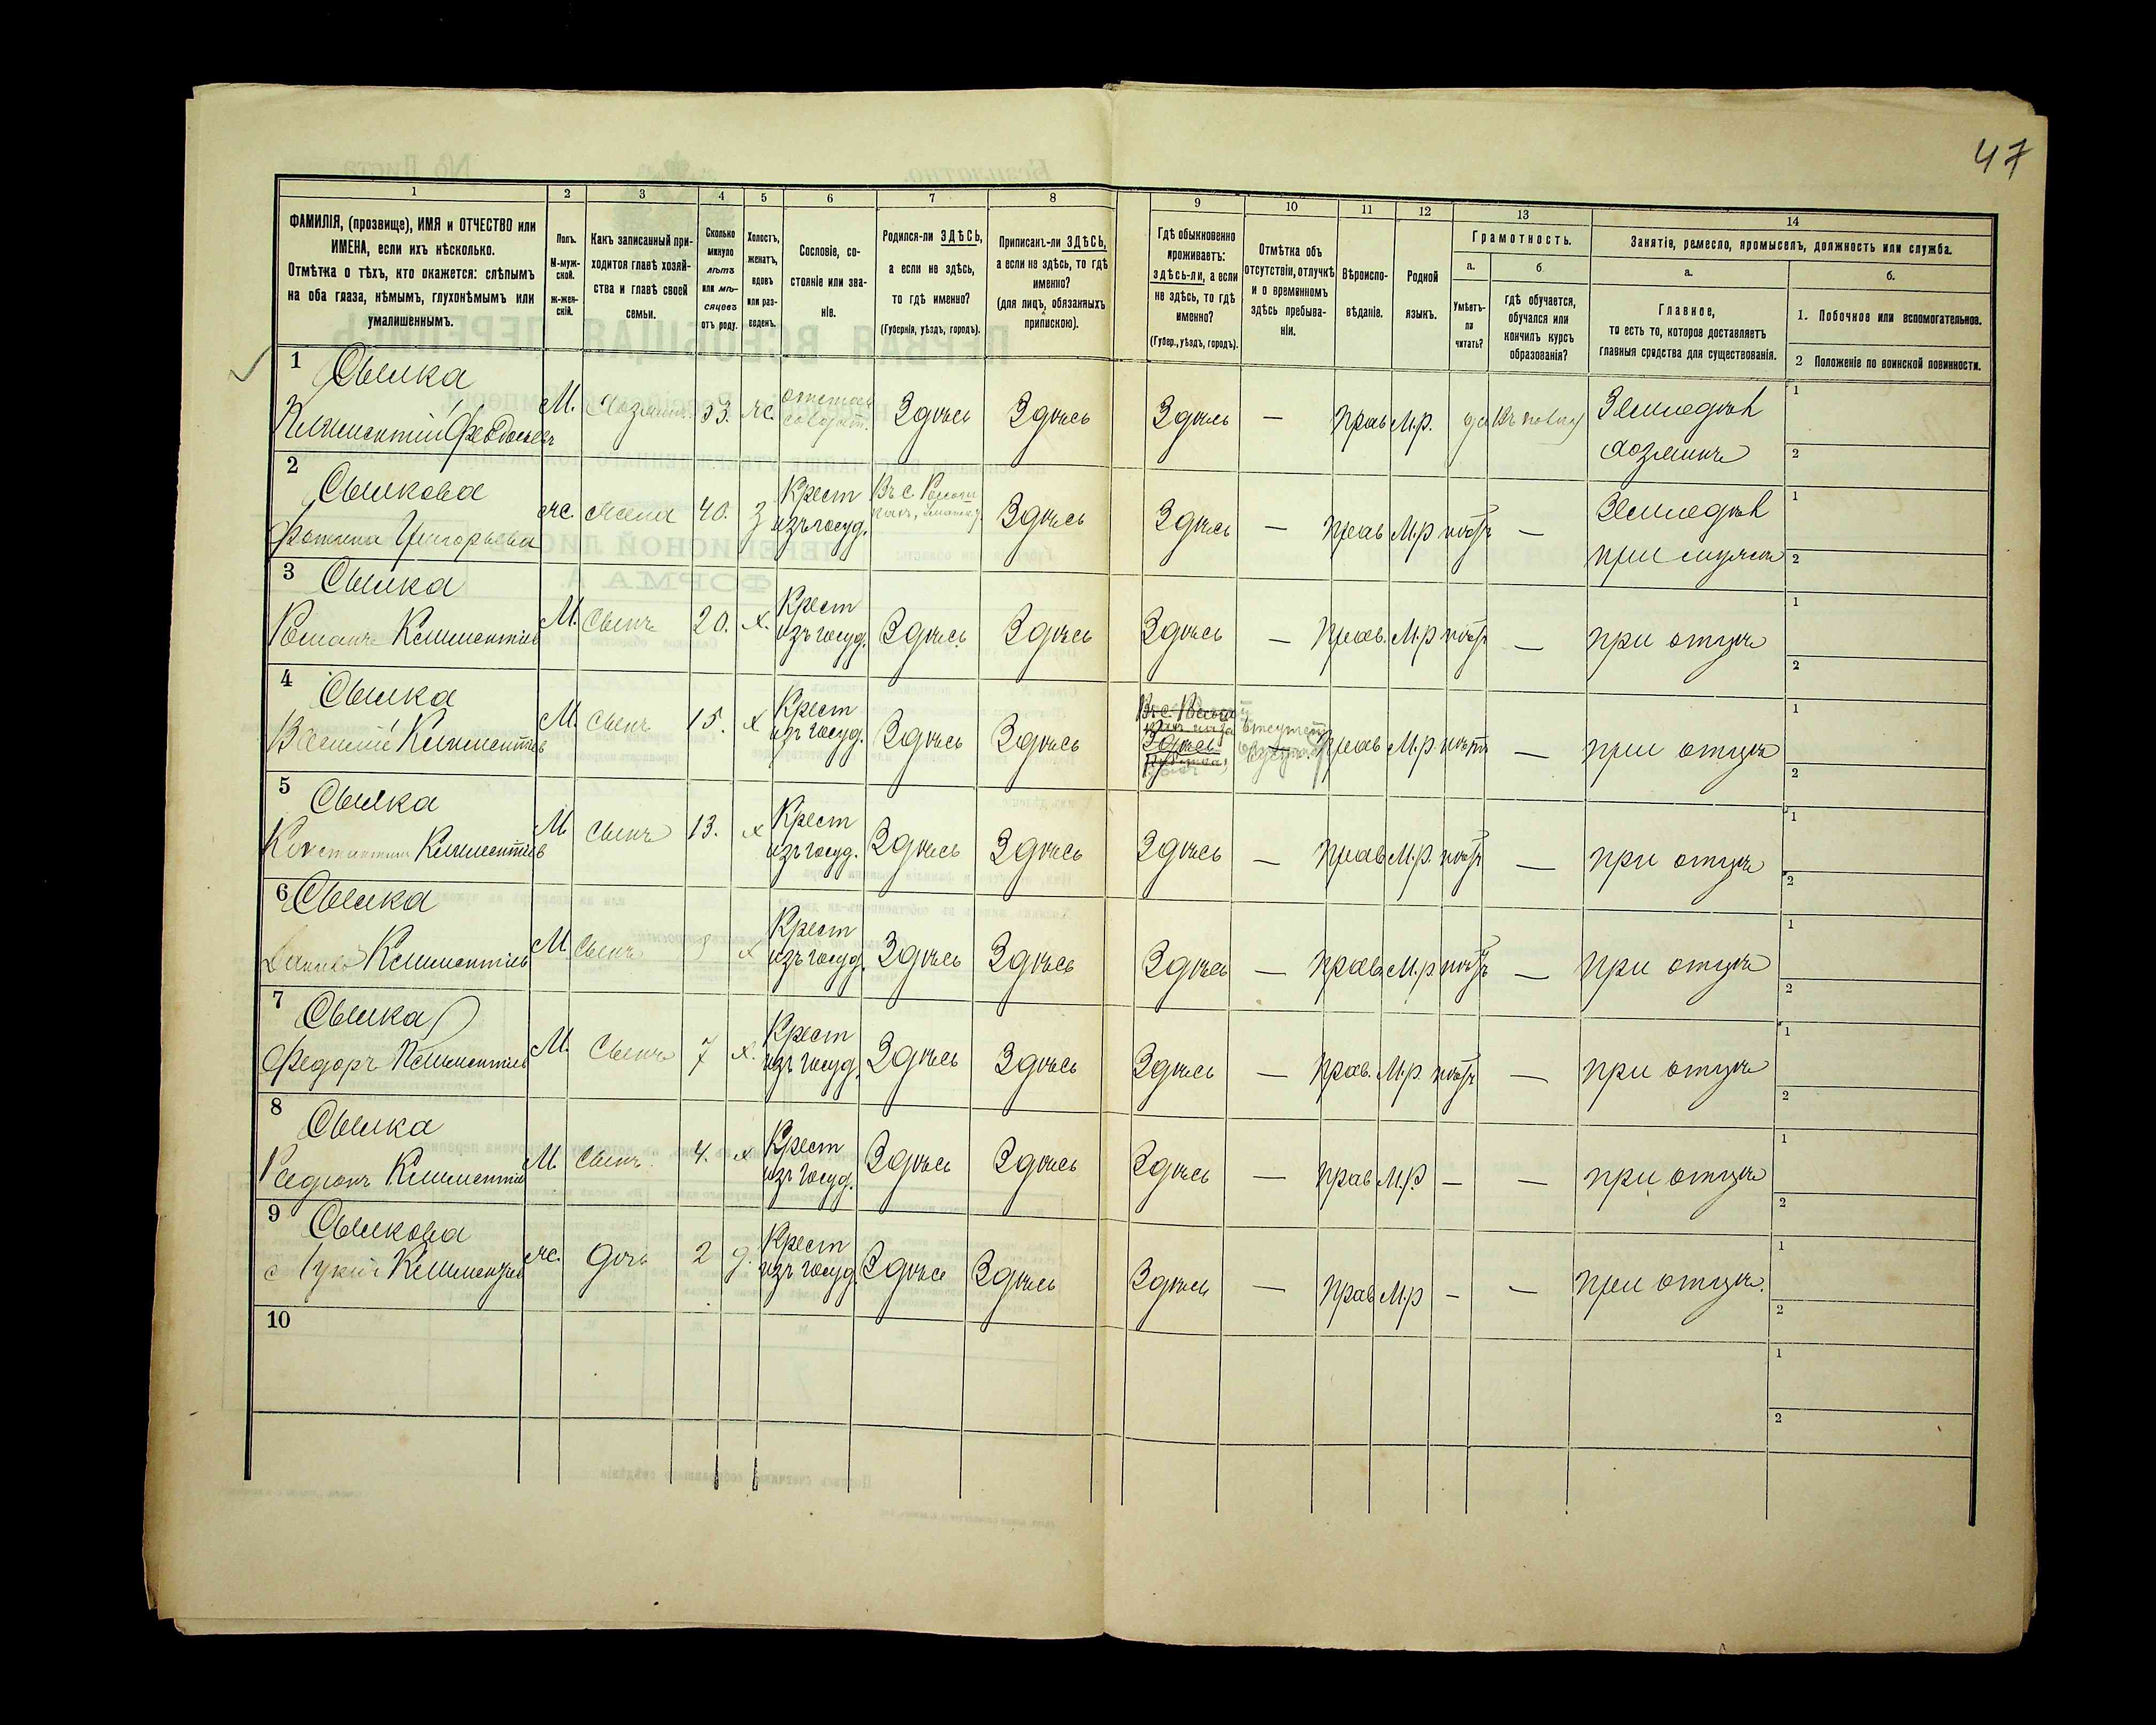 47
1 2 3 4 5 6 7 8 9 10 11 12 13 14
ФАМИЛІЯ, (прозвище), ИМЯ и ОТЧЕСТВО или
ИМЕНА, если ихъ нѣсколько.
Отмѣтка о тѣхъ, кто окажется: слѣпымъ
на оба глаза, нѣмымъ, глухонѣмымъ или
умалишеннымъ.
Полъ.
М-муж-
ской.
ж-жен-
скій.
Какъ записанный при-
ходится главѣ хозяй-
ства и главѣ своей
семьи.
Сколько
минуло
лѣтъ
или мѣ-
сяцевъ
отъ роду.
Холостъ,
женатъ,
вдовъ
или раз-
веденъ.
Сословіе, со-
стояніе или зва-
ніе.
Родился-ли ЗДѢСЬ,
а если не здѣсь,
то гдѣ именно?
(Губернія, уѣздъ, городъ).
Приписанъ-ли ЗДѢСЬ,
а если не здѣсь, то гдѣ
именно?
(для лицъ, обязанныхъ
припискою).
Гдѣ обыкновенно
проживаетъ:
здѣсь-ли, а если
не здѣсь, то гдѣ
именно?
(Губер., уѣздъ, городъ).
Отмѣтка объ
отсутствіи, отлучкѣ
и о временномъ
здѣсь пребыва-
ніи.
Вѣроиспо-
вѣданіе.
Родной
языкъ.
Грамотность.
а.
Умѣетъ-
ли
читать?
б
гдѣ обучается,
обучался или
кончилъ курсъ
образованія?
Занятіе, ремесло, промыселъ, должность или служба.
а.
Главное,
то есть то, которое доставляетъ
главныя средства для существованія.
б.
1. Побочное или вспомогательное.
2 Положеніе по воинской повинности.
1 Сылка
М. Хозяинъ 53. ж. Здѣсь Здѣсь Здѣсь — прав М.р. да Земледѣл 1
хозяинъ 2
2 Сылкова
ж. жена 40. з Крест
изъ госуд. Въ с. Здѣсь Здѣсь — прав М.р нѣтъ — Земледѣл 1
Григорьева при мужѣ 2
3 Сылка
Романъ Климентіев М. Сынъ 20. х. Крест
изъ госуд. Здѣсь Здѣсь Здѣсь — Прав. М.р нѣтъ — при отцѣ 1
2
4 Сылка
Климентіев М. Сынъ 15. х Крест
изъ госуд. Здѣсь Здѣсь Здѣсь прав М.р. нѣтъ — при отцѣ 1
2
5 Сылка
Константинъ Климентіев М Сынъ 13. х Крест
изъ госуд. Здѣсь Здѣсь Здѣсь — прав М.р. нѣтъ — при отцѣ 1
2
6 Сылка
Климентіев М Сынъ х Крест
изъ госуд. Здѣсь Здѣсь Здѣсь — прав М.р нѣтъ — при отцѣ 1
2
7 Сылка
Федоръ Климентіев М. Сынъ 7 х. Крест
изъ госуд. Здѣсь Здѣсь Здѣсь — прав. М.р. нѣтъ — при отцѣ 1
2
8 Сылка
Климентіев М. Сынъ 4. х Крест
изъ госуд. Здѣсь Здѣсь Здѣсь — прав М.р — — при отцѣ 1
2
9 Сылкова
Климентьев ж. дочь 2 д. Крест
изъ госуд. Здѣсь Здѣсь Здѣсь — прав М.р — — при отцѣ. 1
2
10 1
2